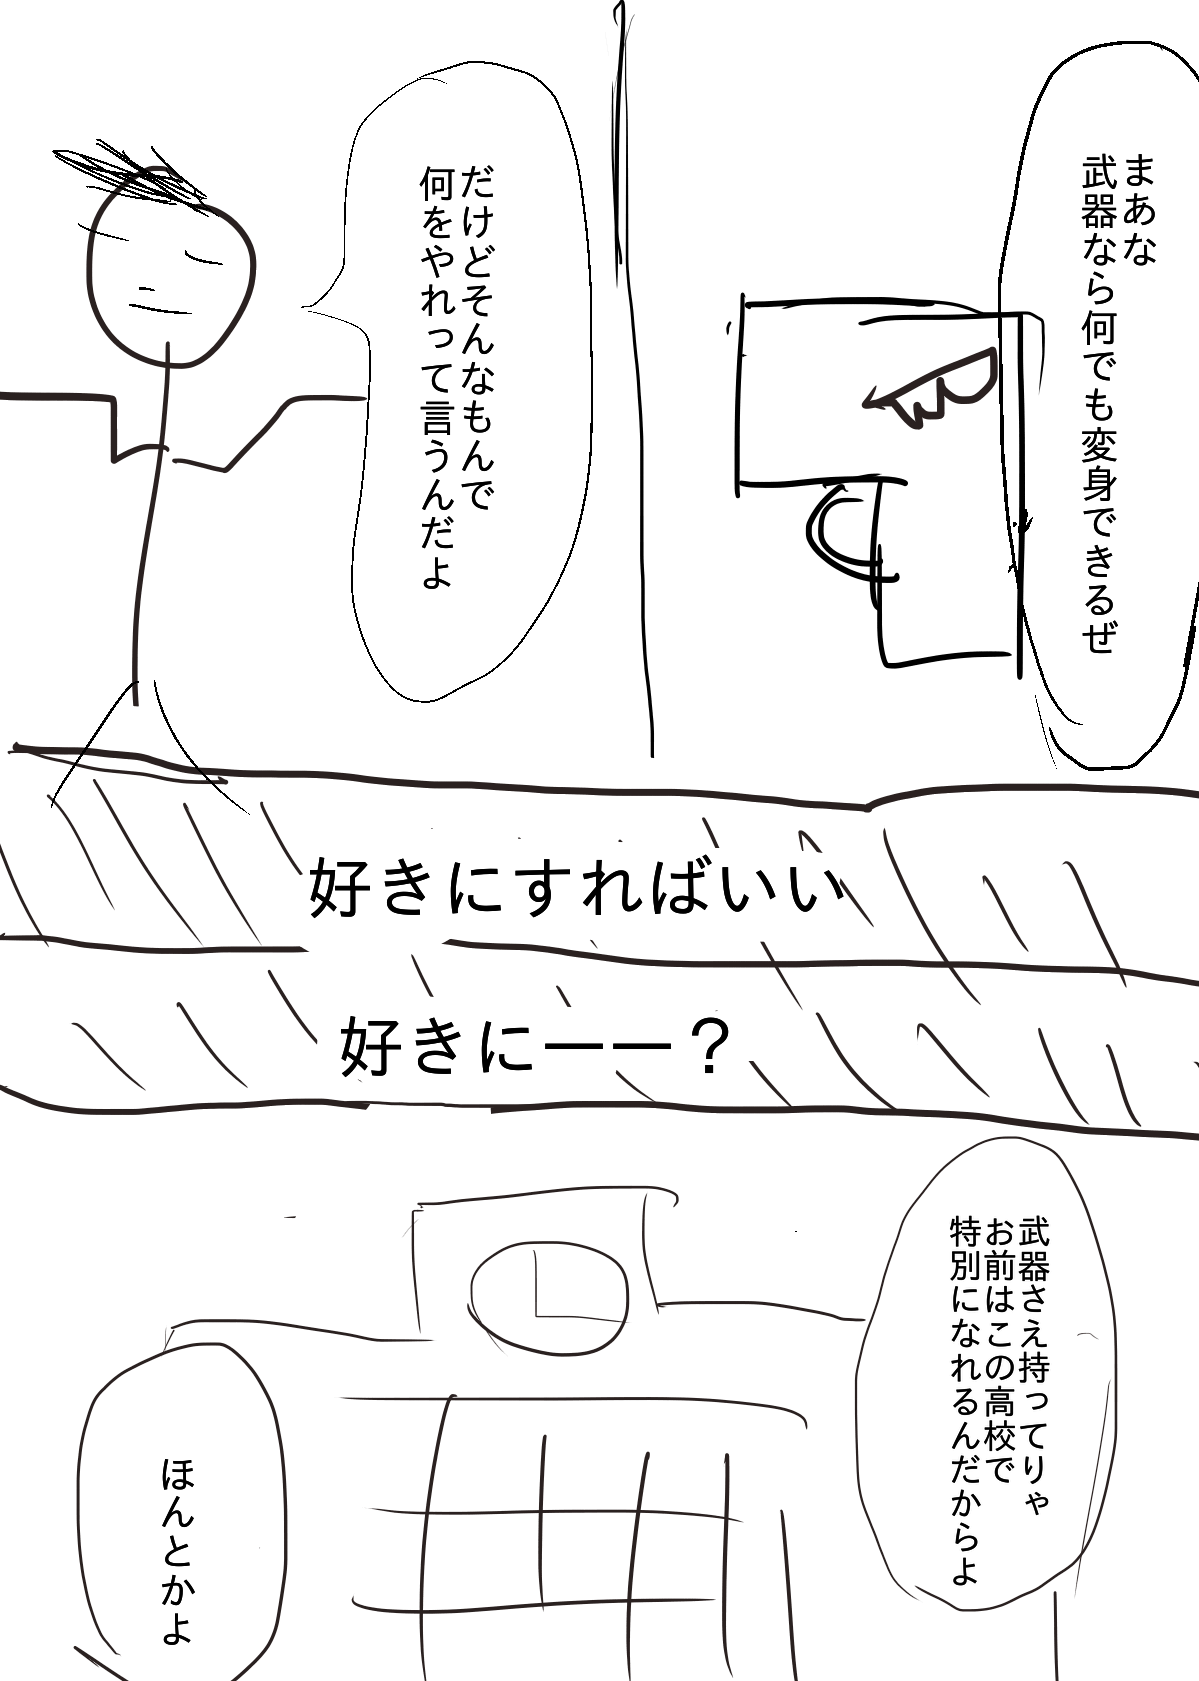 まあな
武器なら何でも変身できるぜ
だけどそんなもんで
何をやれって言うんだよ
好きにすればいい
好きにーー？
武器さえ持ってりゃ
お前はこの高校で
特別になれるんだからよ
ほんとかよ